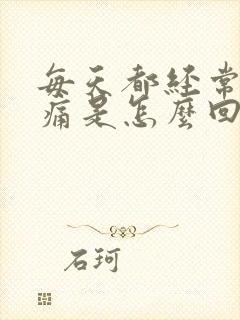 每天都经常
痛是怎麼回
石珂